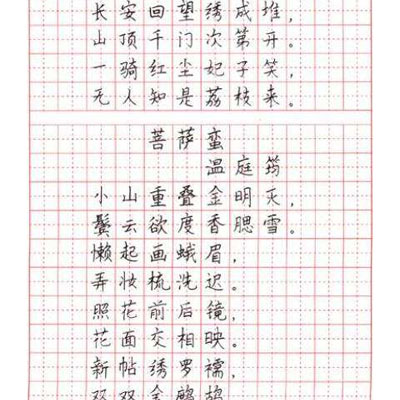 长安回望绣成堆，
山顶千门次第开。
一骑红尘妃子笑，
无人知是荔枝来。
菩萨蛮
温庭筠
小山重叠金明灭，
鬓云欲度香腮雪。
懒起画蛾眉，
弄妆梳洗迟。
照花前后镜，
花面交相映。
新帖绣罗襦，
双双金鹧鸪